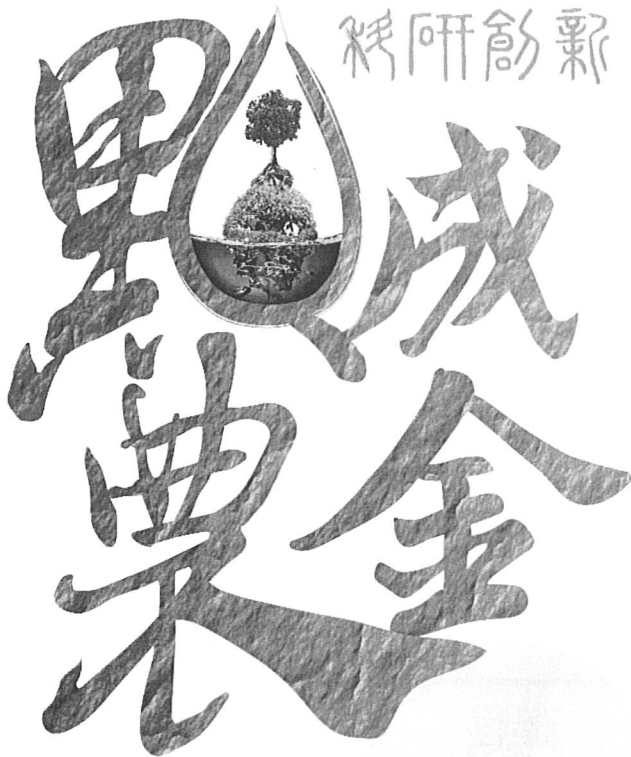 科研創新
點農
成金